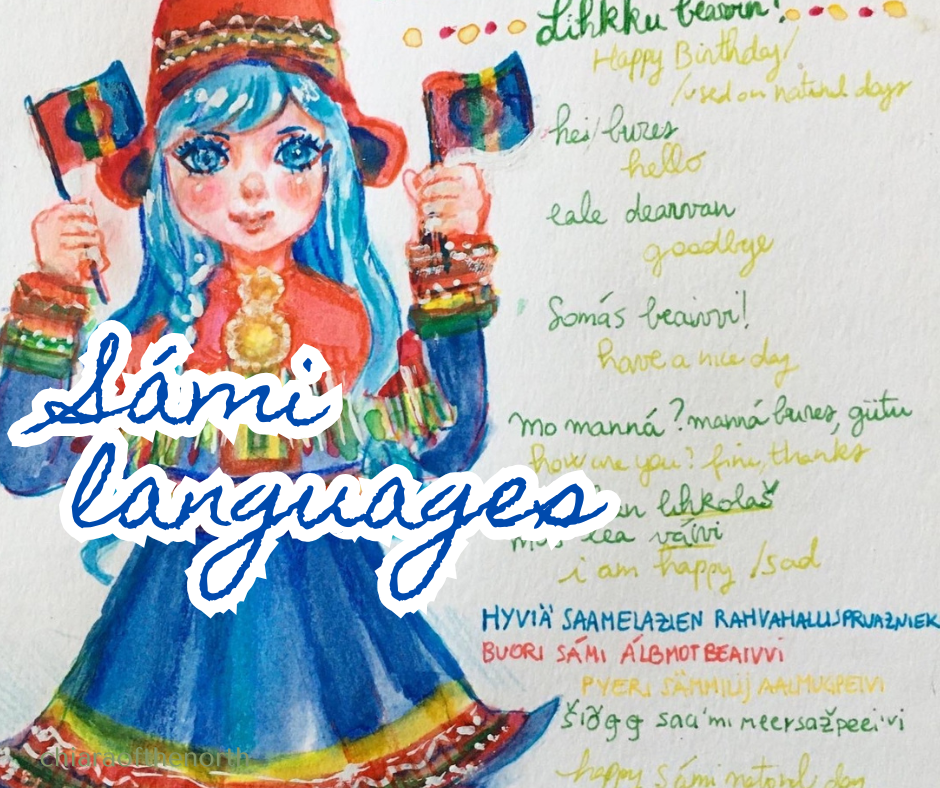 Lihkku beaivin!
Happy Birthday/
/used on national days
hei/bures
hello
eale dearvan
goodbye
Somás beaivvi!
have a nice day
mo manná? manná bures, giitu
how are you? fine, thanks
lihkolaš
lea váivi
i am happy/sad
Sámi
languages
HYVIÄ SAAMELAZIEN RAHVAHALLISPRUAZNIEK
BUORI SÁMI ÁLBMOTBEAIVVI
PYERI SÄMMILIJ AALMUGPEIVI
šiõgg saa'mi meersažpeei'vi
happy Sámi national day
chiaraofthenorth